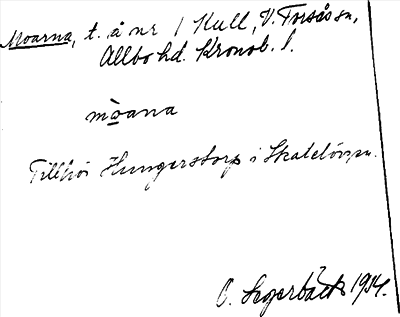 Moarna, t. å nr 1 Kull, V. Torsås sn,
Allbo hd. Kronob. l.
mòana
Tillhör Hungerstorp i Skatelövs sn.
O. Segerbäck 1934.